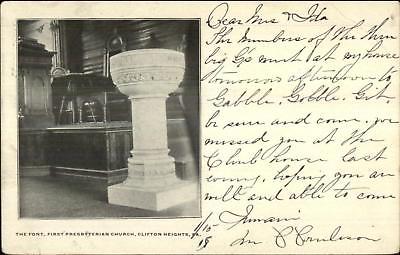 Dear Miss & Ida
The Members of The Three
big G's must at my house
tomorrow afternoon to
Gabble. Gobble. Git.
be sure and come. we
missed you at the
Club house last
evening, hoping you are
well and able to come
I remain
1/15
THE FONT, FIRST PRESBYTERIAN CHURCH, CLIFTON HEIGHTS, PA.